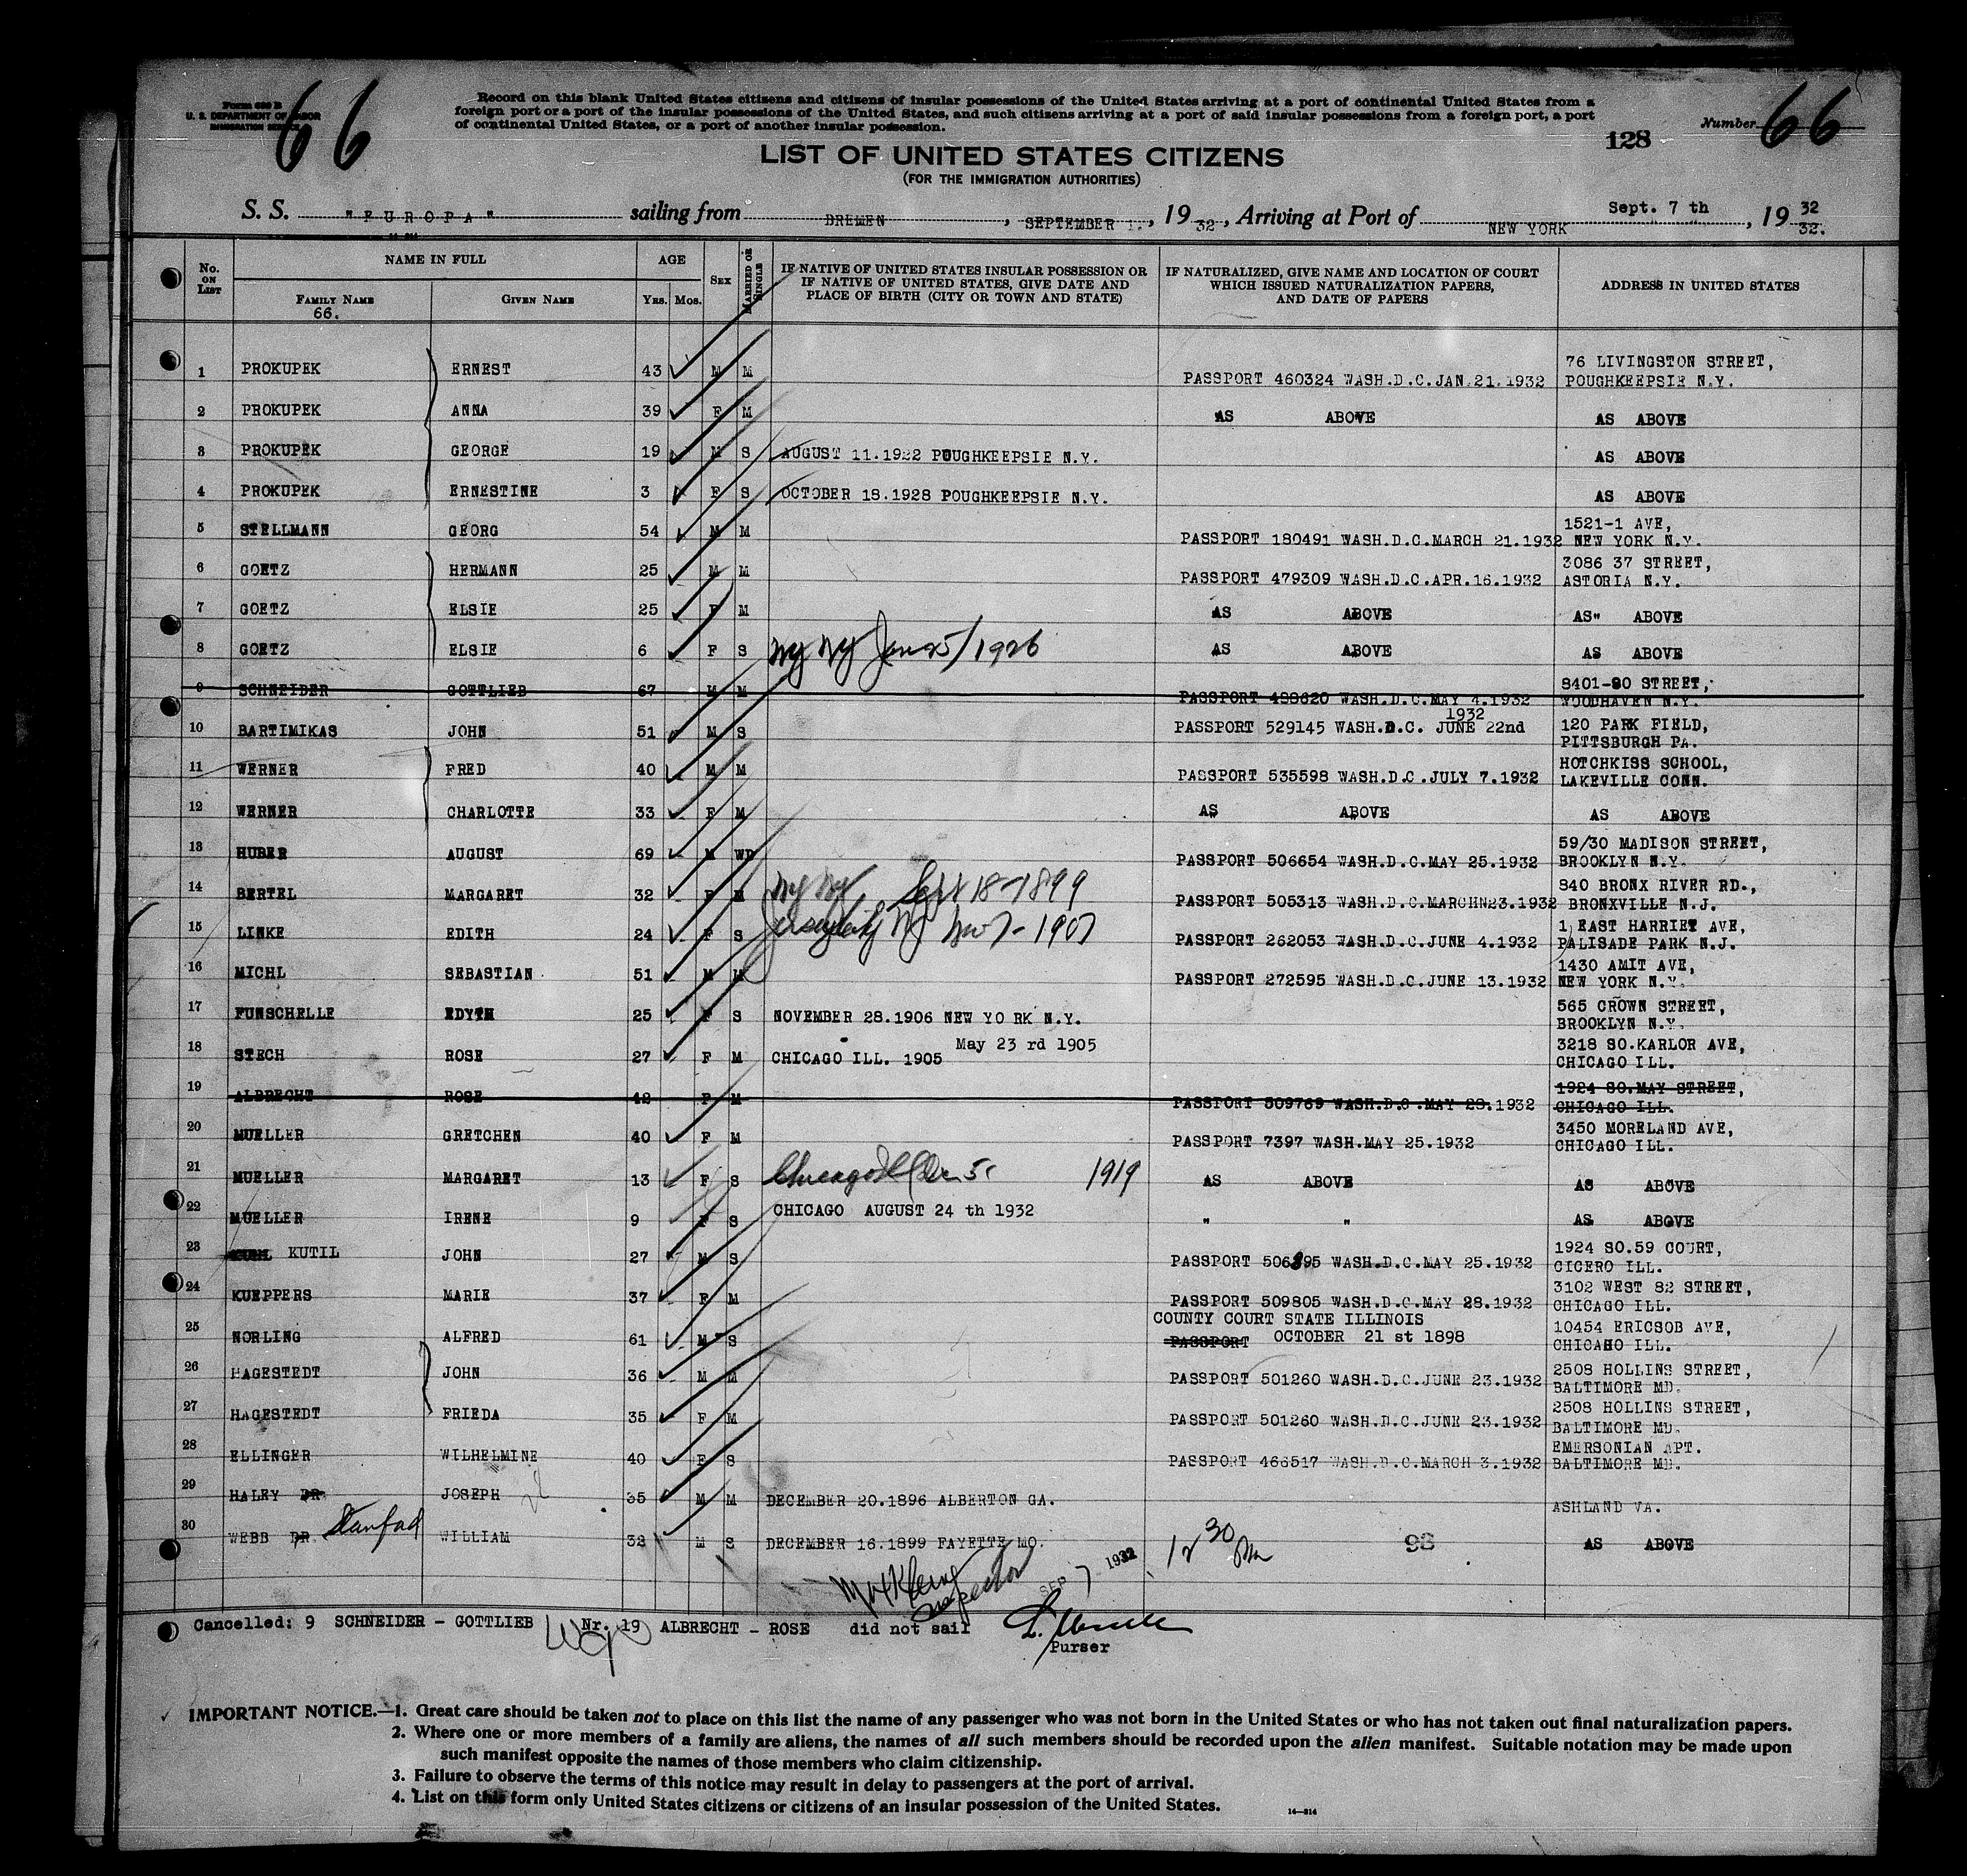 Form 630 B
U. S. DEPARTMENT OF LABOR
IMMIGRATION SERVICE
66
Record on this blank United States citizens and citizens of insular possessions of the United States arriving at a port of continental United States from a
foreign port or a port of the insular possessions of the United States, and such citizens arriving at a port of said insular possessions from a foreign port, a port
of continental United States, or a port of another insular possession.
128
Number 66
LIST OF UNITED STATES CITIZENS
(FOR THE IMMIGRATION AUTHORITIES)
S. S. "EUROPA" sailing from BREMEN, SEPTEMBER 1., 1932, Arriving at Port of NEW YORK Sept. 7 th, 19 32 32.
No. ON LIST NAME IN FULL AGE SEX MARRIED OR SINGLE IF NATIVE OF UNITED STATES INSULAR POSSESSION OR IF NATIVE OF UNITED STATES, GIVE DATE AND PLACE OF BIRTH (CITY OR TOWN AND STATE) IF NATURALIZED, GIVE NAME AND LOCATION OF COURT WHICH ISSUED NATURALIZATION PAPERS, AND DATE OF PAPERS ADDRESS IN UNITED STATES
FAMILY NAME GIVEN NAME YRS. MOS.
66.
1 PROKUPEK ERNEST 43 M M PASSPORT 460324 WASH.D.C.JAN.21.1932 76 LIVINGSTON STREET, POUGHKEEPSIE N.Y.
2 PROKUPEK ANNA 39 F M AS ABOVE AS ABOVE
3 PROKUPEK GEORGE 19 M S AUGUST 11.1922 POUGHKEEPSIE N.Y. AS ABOVE
4 PROKUPEK ERNESTINE 3 F S OCTOBER 18.1928 POUGHKEEPSIE N.Y. AS ABOVE
5 STELLMANN GEORG 54 M M PASSPORT 180491 WASH.D.C.MARCH 21.1932 1521-1 AVE, NEW YORK N.Y.
6 GOETZ HERMANN 25 M M PASSPORT 479309 WASH.D.C.APR.16.1932 3086 37 STREET, ASTORIA N.Y.
7 GOETZ ELSIE 25 F M AS ABOVE AS" ABOVE
8 GOETZ ELSIE 6 F S NY NY Jan 25/1926 AS ABOVE AS ABOVE
9 SCHNEIDER GOTTLIEB 67 M M PASSPORT 488620 WASH.D.C.MAY 4.1932 8401-80 STREET, WOODHAVEN N.Y.
10 BARTIMIKAS JOHN 51 M S PASSPORT 529145 WASH.D.C. JUNE 22nd 1932 120 PARK FIELD, PITTSBURGH PA.
11 WERNER FRED 40 M M PASSPORT 535598 WASH.D.C.JULY 7.1932 HOTCHKISS SCHOOL, LAKEVILLE CONN.
12 WERNER CHARLOTTE 33 F M AS ABOVE AS ABOVE
13 HUBER AUGUST 69 M WD PASSPORT 506654 WASH.D.C.MAY 25.1932 59/30 MADISON STREET, BROOKLYN N.Y.
14 BERTEL MARGARET 32 F M NY NY Sept 18-1899 PASSPORT 505313 WASH.D.C.MARCHN23.1932 840 BRONX RIVER RD., BRONXVILLE N.J.
15 LINKE EDITH 24 F S Jersey City NJ Nov 7-1907 PASSPORT 262053 WASH.D.C.JUNE 4.1932 1, EAST HARRIET AVE, PALISADE PARK N.J.
16 MICHL SEBASTIAN 51 M M PASSPORT 272595 WASH.D.C.JUNE 13.1932 1430 AMIT AVE, NEW YORK N.Y.
17 FUNSCHELLE EDYTH 25 F S NOVEMBER 28.1906 NEW YO RK N.Y. 565 CROWN STREET, BROOKLYN N.Y.
18 STECH ROSE 27 F M CHICAGO ILL. 1905 May 23 rd 1905 3218 SO.KARLOR AVE, CHICAGO ILL.
19 ALBRECHT ROSE 42 F M PASSPORT 509769 WASH.D.C.MAY 28.1932 1924 SO.MAY STREET, CHICAGO ILL.
20 MUELLER GRETCHEN 40 F M PASSPORT 7397 WASH.MAY 25.1932 3450 MORELAND AVE, CHICAGO ILL.
21 MUELLER MARGARET 13 F S Chicago Ill 5 1919 AS ABOVE AS ABOVE
22 MUELLER IRENE 9 F S CHICAGO AUGUST 24 th 1932 " " AS ABOVE
23 KUTIL JOHN 27 M S PASSPORT 506895 WASH.D.C.MAY 25.1932 1924 SO.59 COURT, CICERO ILL.
24 KUEPPERS MARIE 37 F M PASSPORT 509805 WASH.D.C.MAY 28.1932 3102 WEST 82 STREET, CHICAGO ILL.
25 NORLING ALFRED 61 M S COUNTY COURT STATE ILLINOIS PASSPORT OCTOBER 21 st 1898 10454 ERICSOB AVE, CHICAHO ILL.
26 HAGESTEDT JOHN 36 M M PASSPORT 501260 WASH.D.C.JUNE 23.1932 2508 HOLLINS STREET, BALTIMORE MD.
27 HAGESTEDT FRIEDA 35 F M PASSPORT 501260 WASH.D.C.JUNE 23.1932 2508 HOLLINS STREET, BALTIMORE MD.
28 ELLINGER WILHELMINE 40 F S PASSPORT 466517 WASH.D.C.MARCH 3.1932 EMERSONIAN APT. BALTIMORE MD.
29 HALEY DR JOSEPH 35 M M DECEMBER 20.1896 ALBERTON GA. ASHLAND VA.
30 WEBB DR. Stanford WILLIAM 32 M S DECEMBER 16.1899 FAYETTE MO. 12 30 Pm 98 AS ABOVE
Inspector SEP 7 1932
Cancelled: 9 SCHNEIDER - GOTTLIEB Nr. 19 ALBRECHT - ROSE did not sail
Purser
IMPORTANT NOTICE.—1. Great care should be taken not to place on this list the name of any passenger who was not born in the United States or who has not taken out final naturalization papers.
2. Where one or more members of a family are aliens, the names of all such members should be recorded upon the alien manifest. Suitable notation may be made upon
such manifest opposite the names of those members who claim citizenship.
3. Failure to observe the terms of this notice may result in delay to passengers at the port of arrival.
4. List on this form only United States citizens or citizens of an insular possession of the United States.
14—814